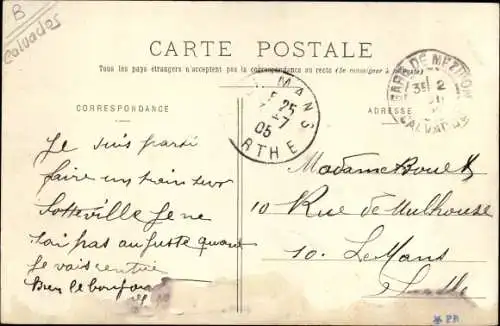 B
Calvados
CARTE POSTALE
Tous les pays étrangers n'acceptent pas la correspondance au recto (Se renseigner à la poste)
CORRESPONDANCE
ADRESSE
MANS
25
-7
05
RTHE
GARE DE MEZIDON
2
CALVADOS
Je suis parti
faire un train sur
Sotteville Je ne
sai pas au juste quant
Je vais
Bien le bonjour
Madame
10 Rue de Mulhouse
10. Le Mans
Sarthe